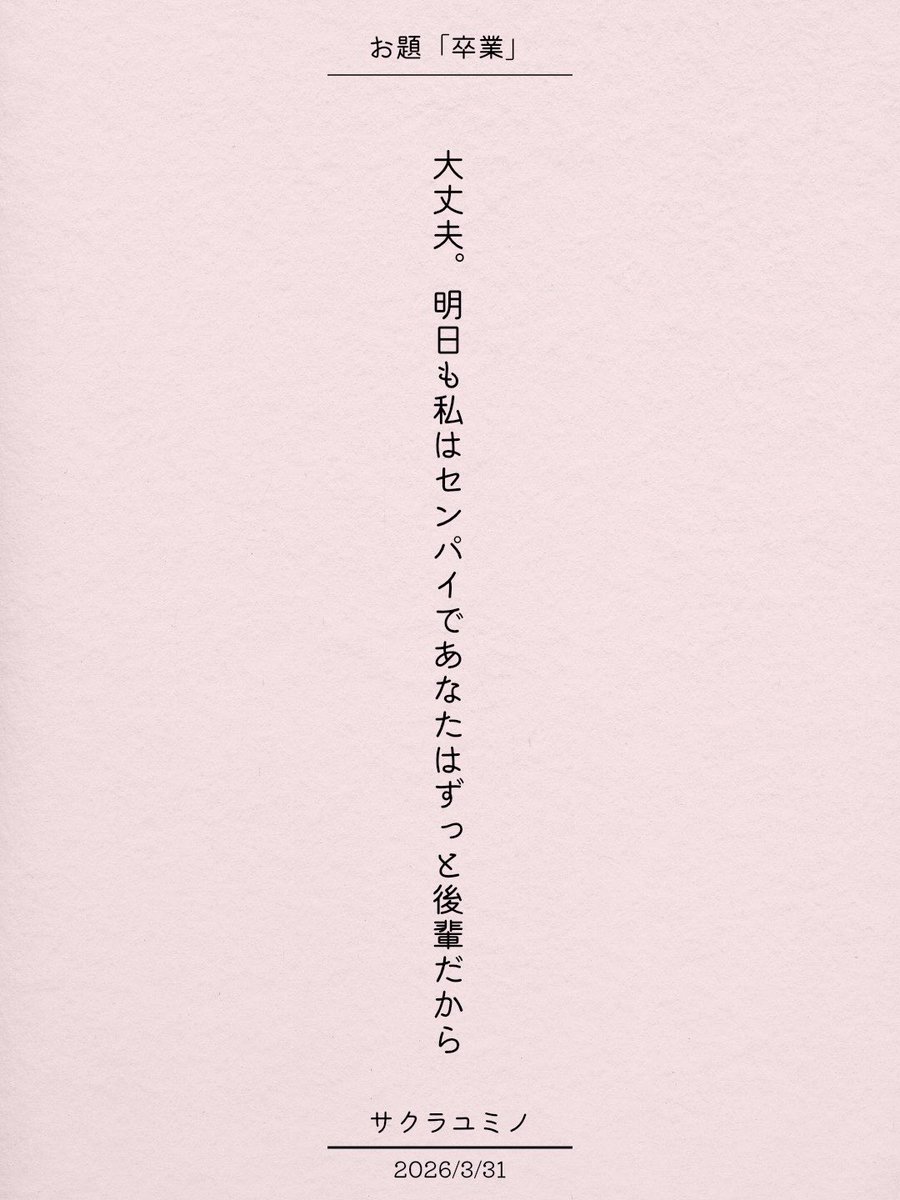 お題「卒業」
大丈夫。明日も私はセンパイであなたはずっと後輩だから
サクラユミノ
2026/3/31